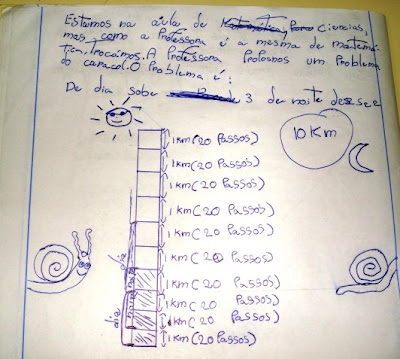 Estamos na aula de Matemática, para ciências,
mas como a Professora é a mesma de matemá-
tica, trocámos. A Professora Propôs nos um Problema
do caracol. O Problema é:
De dia sobe 3 de noite desce 2
10 Km
1 km (20 Passos)
1 km (20 Passos)
1 km (20 Passos)
1 km (20 Passos)
1 km (20 Passos)
1 km (20 Passos)
1 km (20 Passos)
1 km (20 Passos)
1 km (20 Passos)
1 km (20 Passos)
dia
noite
dia
noite